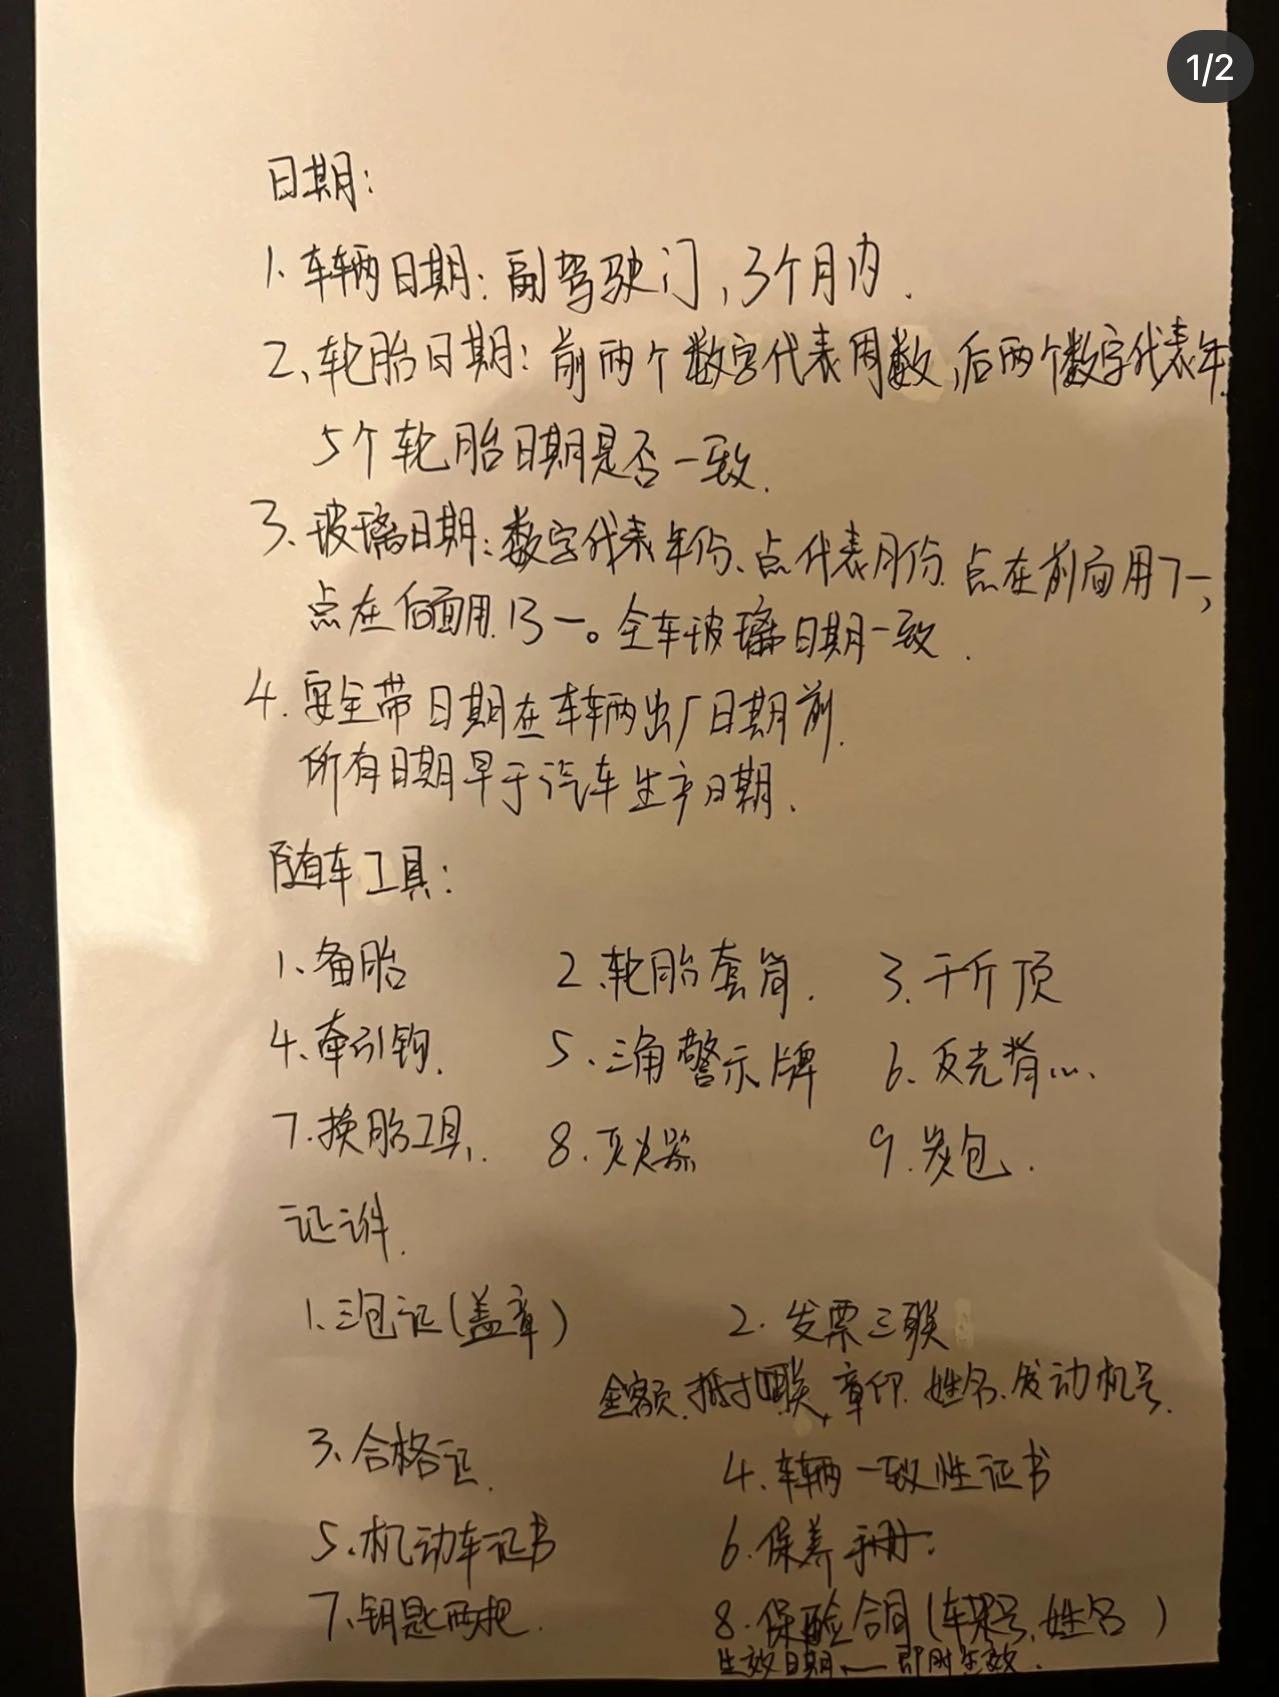 1/2
日期:
1、车辆日期: 副驾驶门, 3个月内.
2、轮胎日期: 前两个数字代表周数, 后两个数字代表年.
5个轮胎日期是否一致.
3、玻璃日期: 数字代表年份、点代表月份. 点在前面用7一,
点在后面用13一。全车玻璃日期一致.
4. 安全带日期在车辆出厂日期前.
所有日期早于汽车生产日期.
随车工具:
1、备胎 2.轮胎套筒. 3.千斤顶
4、牵引钩. 5、三角警示牌 6、反光背心.
7.换胎工具. 8.灭火器 9.炭包.
证件.
1、三包证(盖章) 2.发票三联
金额、抵扣联、章印、姓名、发动机号.
3、合格证. 4.车辆一致性证书
5、机动车证书 6.保养手册.
7、钥匙两把. 8.保险合同(车架号、姓名)
生效日期——即时生效.